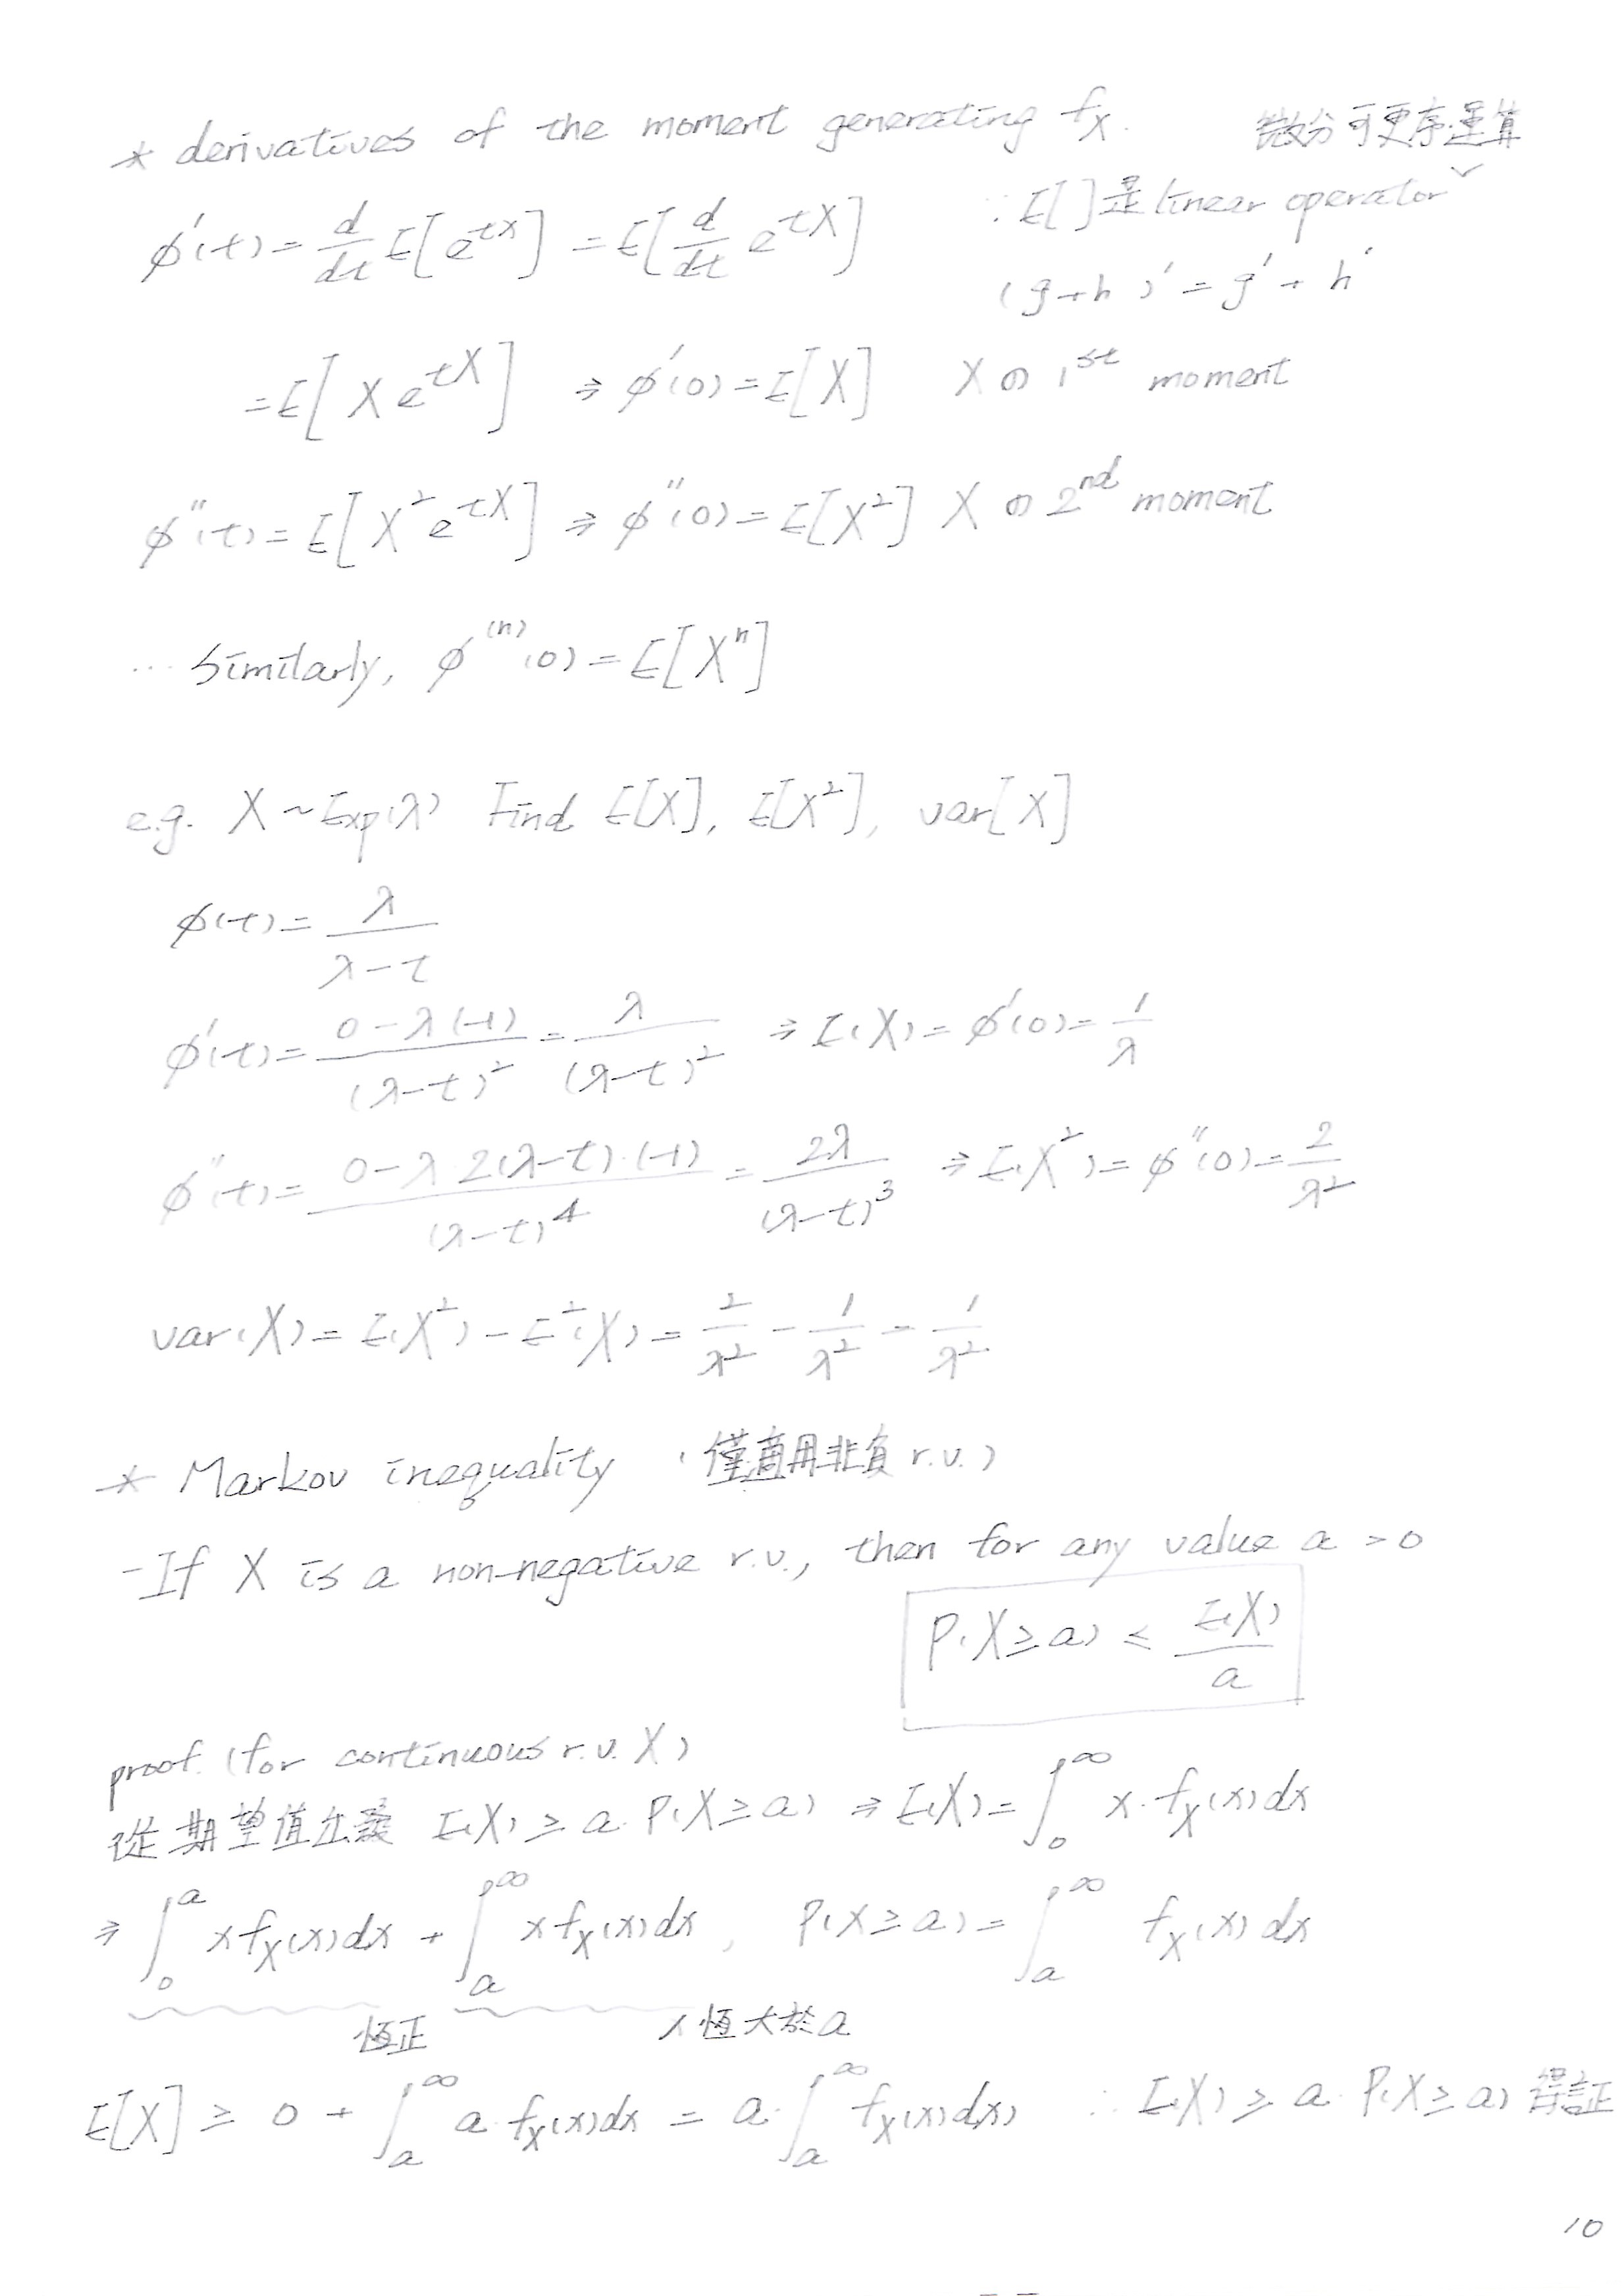 * derivatives of the moment generating fx. 微分可更序運算
φ'(t) = d/dt E[e^{tX}] = E[d/dt e^{tX}] ∵ E[ ]是 linear operator
(g+h)' = g' + h'
= E[X e^{tX}] ⇒ φ'(0) = E[X] X の 1st moment
φ''(t) = E[X² e^{tX}] ⇒ φ''(0) = E[X²] X の 2nd moment
... Similarly, φ^{(n)}(0) = E[X^n]
e.g. X ~ Exp(λ) Find E[X], E[X²], var[X]
φ(t) = λ/(λ-t)
φ'(t) = (0-λ(-1))/(λ-t)² = λ/(λ-t)² ⇒ E(X) = φ'(0) = 1/λ
φ''(t) = (0-λ·2(λ-t)·(-1))/(λ-t)⁴ = 2λ/(λ-t)³ ⇒ E(X²) = φ''(0) = 2/λ²
var(X) = E(X²) - E²(X) = 2/λ² - 1/λ² = 1/λ²
* Markov inequality (僅適用非負 r.v.)
- If X is a non-negative r.v., then for any value a > 0
P(X ≥ a) ≤ E(X)/a
proof. (for continuous r.v. X)
從期望值出發 E(X) ≥ a·P(X ≥ a) ⇒ E(X) = ∫_0^∞ x·f_X(x)dx
⇒ ∫_0^a x f_X(x)dx + ∫_a^∞ x f_X(x)dx, P(X ≥ a) = ∫_a^∞ f_X(x)dx
恆正 x 恆大於a
E[X] ≥ 0 + ∫_a^∞ a·f_X(x)dx = a·∫_a^∞ f_X(x)dx) ∴ E(X) ≥ a·P(X ≥ a) 得証
10